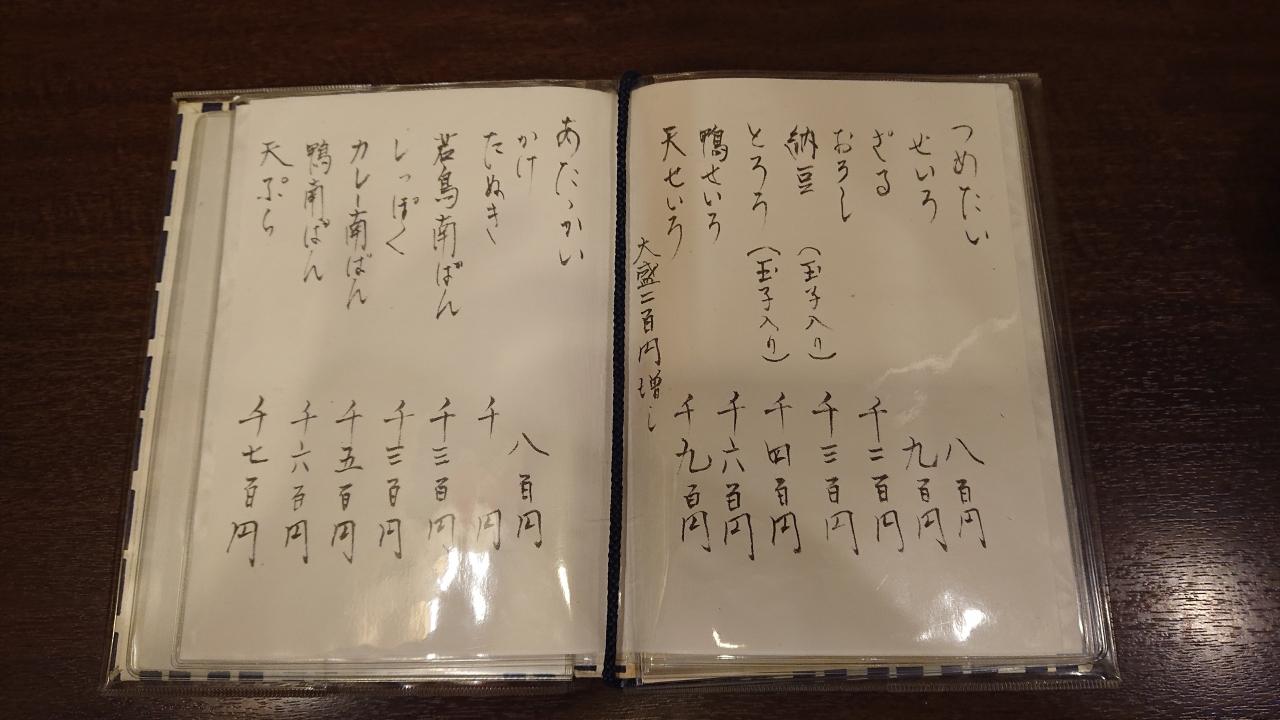 つめたい
せいろ 八百円
ざる 九百円
おろし 千二百円
納豆 (玉子入り) 千三百円
とろろ (玉子入り) 千四百円
鴨せいろ 千六百円
天せいろ 千九百円
大盛二百円増し
あたゝかい
かけ 八百円
たぬき 千円
若鳥南ばん 千三百円
しっぽく 千三百円
カレー南ばん 千五百円
鴨南ばん 千六百円
天ぷら 千七百円